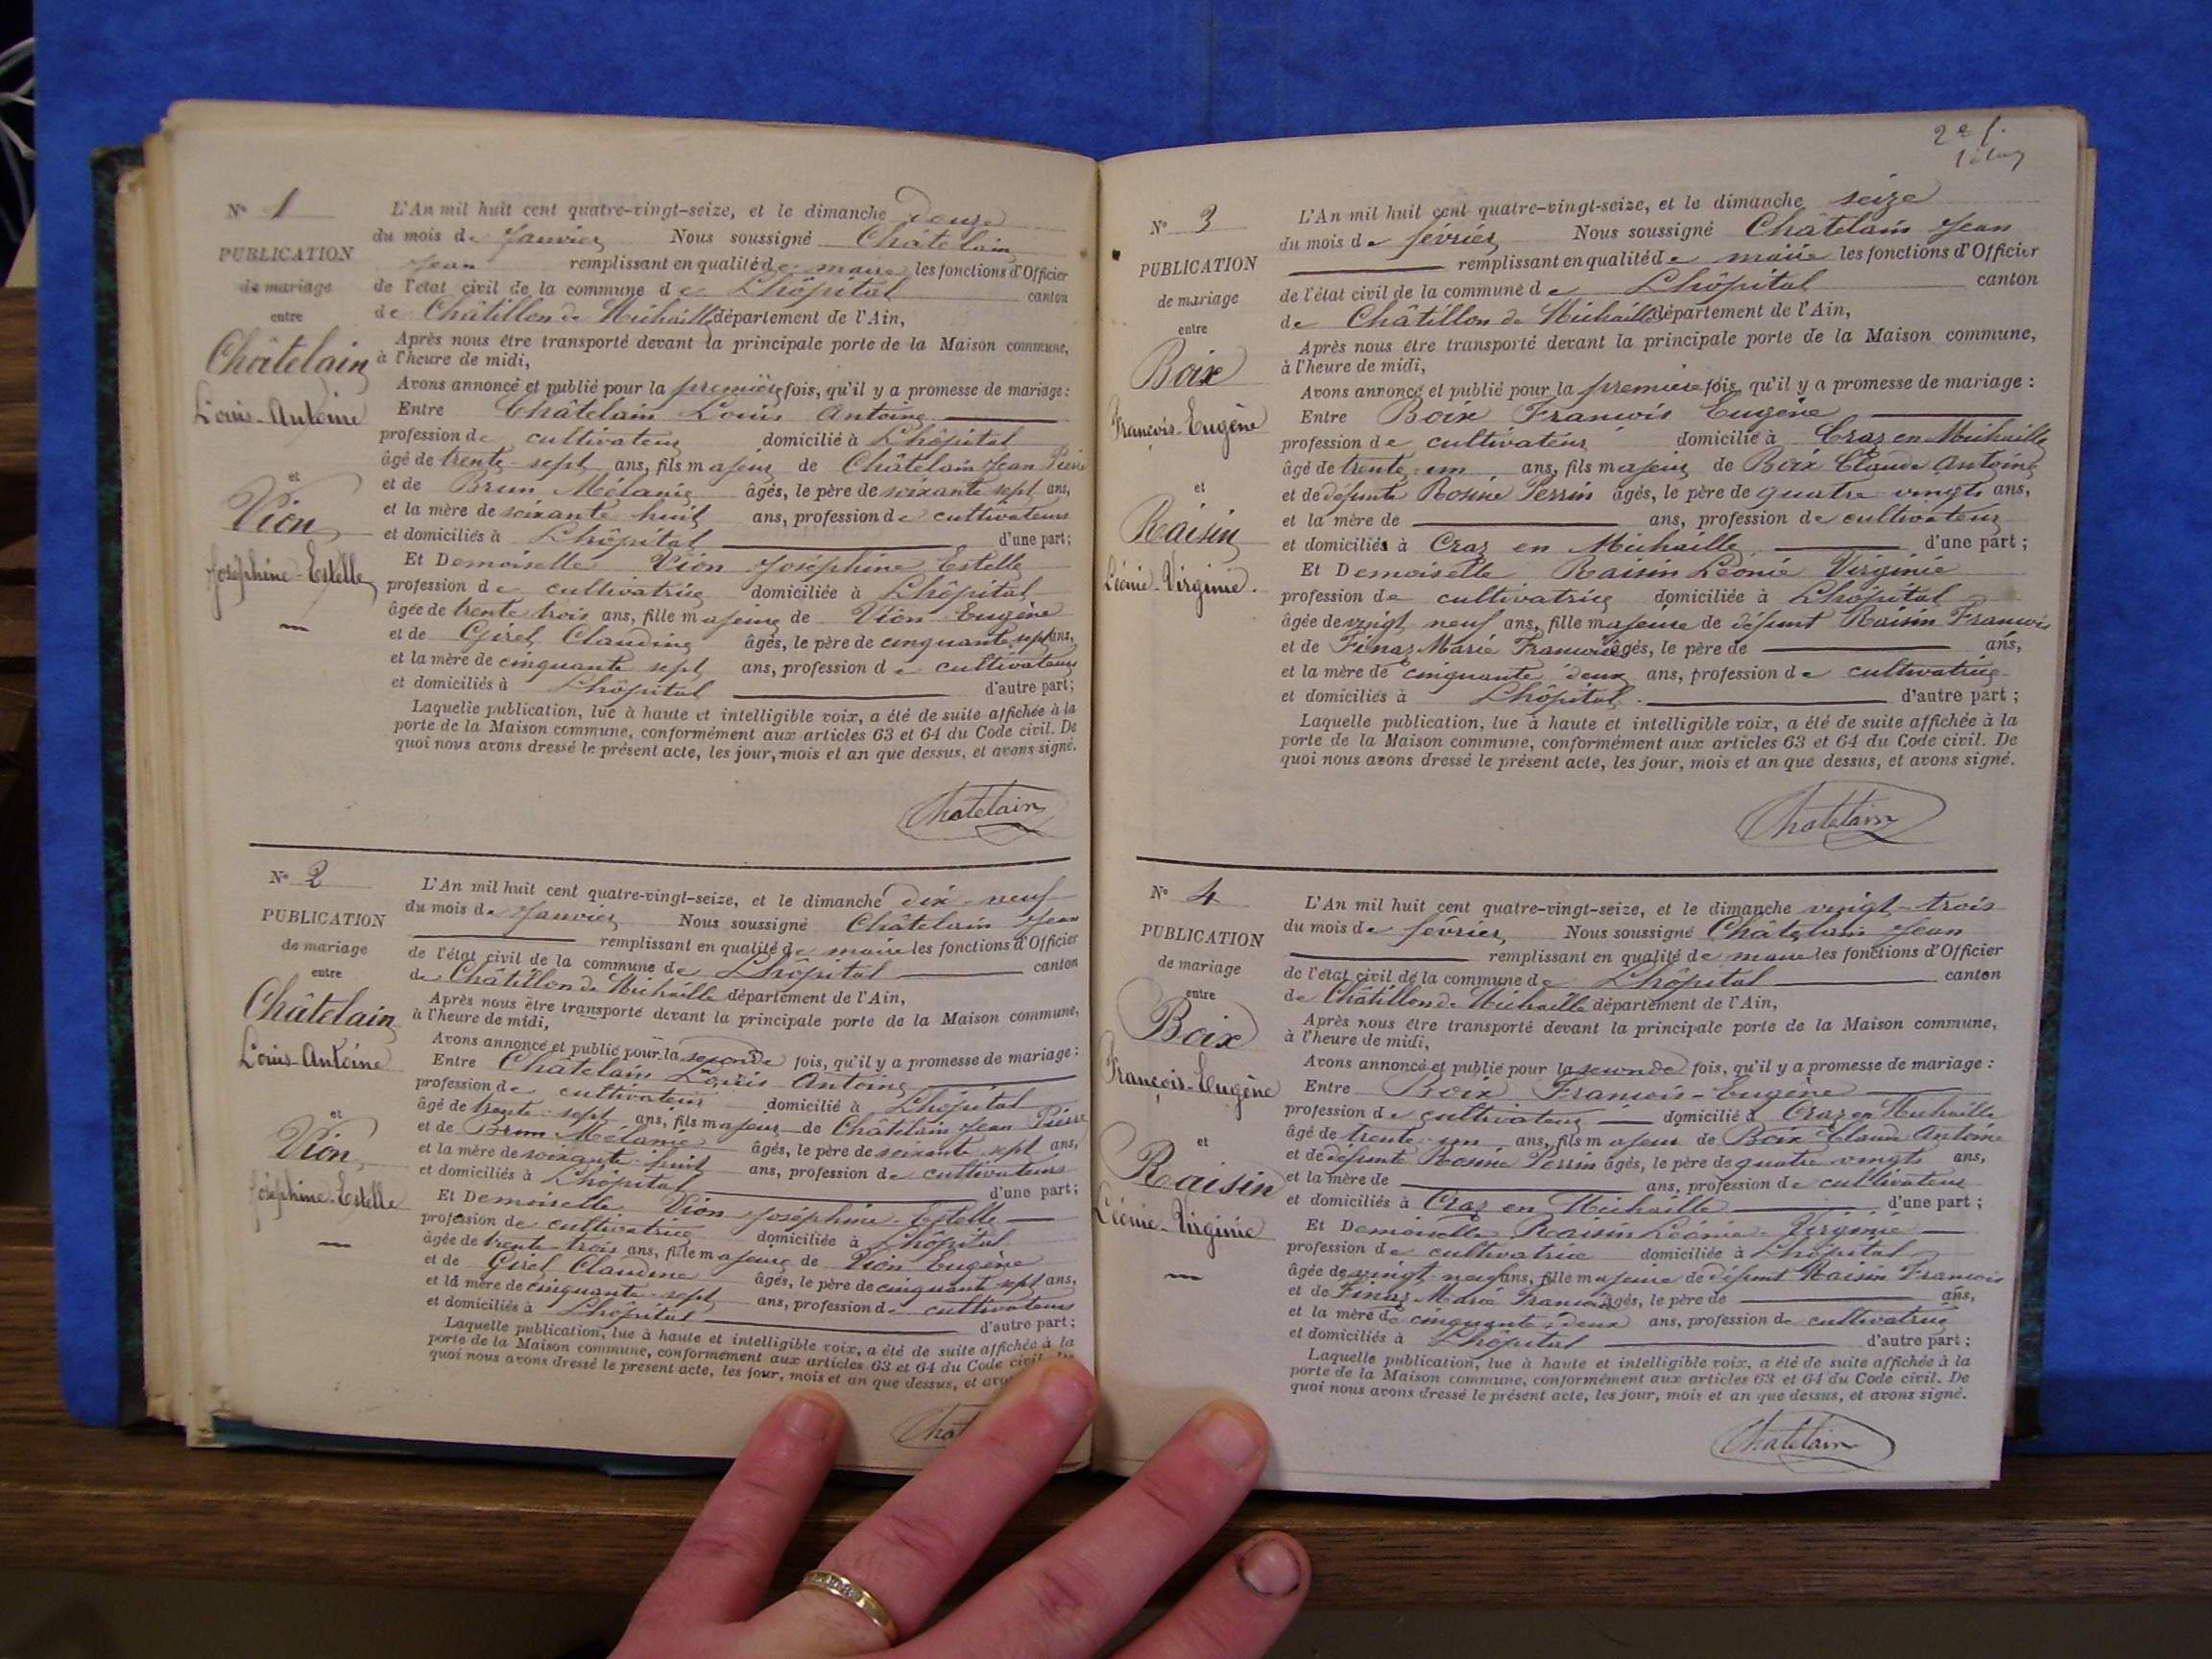 N° 1
PUBLICATION
de mariage
entre
Châtelain
Louis-Antoine
et
Vion
Joséphine-Estelle
L'An mil huit cent quatre-vingt-seize, et le dimanche douze
du mois de Janvier Nous soussigné Châtelain
Jean remplissant en qualité de maire les fonctions d'Officier
de l'état civil de la commune de Lhôpital canton
de Châtillon de Michaille département de l'Ain,
Après nous être transporté devant la principale porte de la Maison commune,
à l'heure de midi,
Avons annoncé et publié pour la première fois, qu'il y a promesse de mariage :
Entre Châtelain Louis Antoine
profession de cultivateur domicilié à Lhôpital
âgé de trente-sept ans, fils majeur de Châtelain Jean Pierre
et de Brun Mélanie âgés, le père de soixante sept ans,
et la mère de soixante huit ans, profession de cultivateurs
et domiciliés à Lhôpital d'une part;
Et Demoiselle Vion Joséphine Estelle
profession de cultivatrice domiciliée à Lhôpital
âgée de trente trois ans, fille majeure de Vion Eugène
et de Girel Claudine âgés, le père de cinquante sept ans,
et la mère de cinquante sept ans, profession de cultivateurs
et domiciliés à Lhôpital d'autre part;
Laquelle publication, lue à haute et intelligible voix, a été de suite affichée à la
porte de la Maison commune, conformément aux articles 63 et 64 du Code civil. De
quoi nous avons dressé le présent acte, les jour, mois et an que dessus, et avons signé.
Chatelain
N° 2
PUBLICATION
de mariage
entre
Châtelain
Louis-Antoine
et
Vion
Joséphine-Estelle
L'An mil huit cent quatre-vingt-seize, et le dimanche dix-neuf
du mois de Janvier Nous soussigné Châtelain Jean
remplissant en qualité de maire les fonctions d'Officier
de l'état civil de la commune de Lhôpital canton
de Châtillon de Michaille département de l'Ain,
Après nous être transporté devant la principale porte de la Maison commune,
à l'heure de midi,
Avons annoncé et publié pour la seconde fois, qu'il y a promesse de mariage :
Entre Châtelain Louis Antoine
profession de cultivateur domicilié à Lhôpital
âgé de trente-sept ans, fils majeur de Châtelain Jean Pierre
et de Brun Mélanie âgés, le père de soixante sept ans,
et la mère de soixante-huit ans, profession de cultivateurs
et domiciliés à Lhôpital d'une part;
Et Demoiselle Vion Joséphine-Estelle
profession de cultivatrice domiciliée à Lhôpital
âgée de trente-trois ans, fille majeure de Vion Eugène
et de Girel Claudine âgés, le père de cinquante sept ans,
et la mère de cinquante-sept ans, profession de cultivateurs
et domiciliés à Lhôpital d'autre part;
Laquelle publication, lue à haute et intelligible voix, a été de suite affichée à la
porte de la Maison commune, conformément aux articles 63 et 64 du Code civil. De
quoi nous avons dressé le présent acte, les jour, mois et an que dessus, et avo
Chat
2e f.
N° 3
PUBLICATION
de mariage
entre
Boix
François-Eugène
et
Raisin
Léonie-Virginie.
L'An mil huit cent quatre-vingt-seize, et le dimanche seize
du mois de février Nous soussigné Châtelain Jean
remplissant en qualité de maire les fonctions d'Officier
de l'état civil de la commune de Lhôpital canton
de Châtillon de Michaille département de l'Ain,
Après nous être transporté devant la principale porte de la Maison commune,
à l'heure de midi,
Avons annoncé et publié pour la première fois, qu'il y a promesse de mariage :
Entre Boix François Eugène
profession de cultivateur domicilié à Craz en Michaille
âgé de trente-un ans, fils majeur de Boix Claude Antoine
et de défunte Rosine Perrin âgés, le père de quatre vingts ans,
et la mère de ans, profession de cultivateur
et domiciliés à Craz en Michaille d'une part;
Et Demoiselle Raisin Léonie Virginie
profession de cultivatrice domiciliée à Lhôpital
âgée de vingt neuf ans, fille majeure de défunt Raisin François
et de Finaz Marie Françoise âgés, le père de ans,
et la mère de cinquante deux ans, profession de cultivatrice
et domiciliés à Lhôpital. d'autre part;
Laquelle publication, lue à haute et intelligible voix, a été de suite affichée à la
porte de la Maison commune, conformément aux articles 63 et 64 du Code civil. De
quoi nous avons dressé le présent acte, les jour, mois et an que dessus, et avons signé.
Chatelain
N° 4
PUBLICATION
de mariage
entre
Boix
François-Eugène
et
Raisin
Léonie-Virginie
L'An mil huit cent quatre-vingt-seize, et le dimanche vingt-trois
du mois de février Nous soussigné Châtelain Jean
remplissant en qualité de maire les fonctions d'Officier
de l'état civil de la commune de Lhôpital canton
de Châtillon de Michaille département de l'Ain,
Après nous être transporté devant la principale porte de la Maison commune,
à l'heure de midi,
Avons annoncé et publié pour la seconde fois, qu'il y a promesse de mariage :
Entre Boix François-Eugène
profession de cultivateur domicilié à Craz en Michaille
âgé de trente-un ans, fils majeur de Boix Claude Antoine
et de défunte Rosine Perrin âgés, le père de quatre vingts ans,
et la mère de ans, profession de cultivateur
et domiciliés à Craz en Michaille d'une part;
Et Demoiselle Raisin Léonie-Virginie
profession de cultivatrice domiciliée à Lhôpital
âgée de vingt-neuf ans, fille majeure de défunt Raisin François
et de Finaz Marie Françoise âgés, le père de ans,
et la mère de cinquante-deux ans, profession de cultivatrice
et domiciliés à Lhôpital d'autre part;
Laquelle publication, lue à haute et intelligible voix, a été de suite affichée à la
porte de la Maison commune, conformément aux articles 63 et 64 du Code civil. De
quoi nous avons dressé le présent acte, les jour, mois et an que dessus, et avons signé.
Chatelain